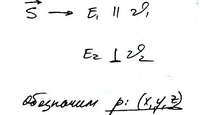 S⃗ → E₁ ∥ 𝒱₁
E₂ ⊥ 𝒱₂
обозначим p: (x, y, z)